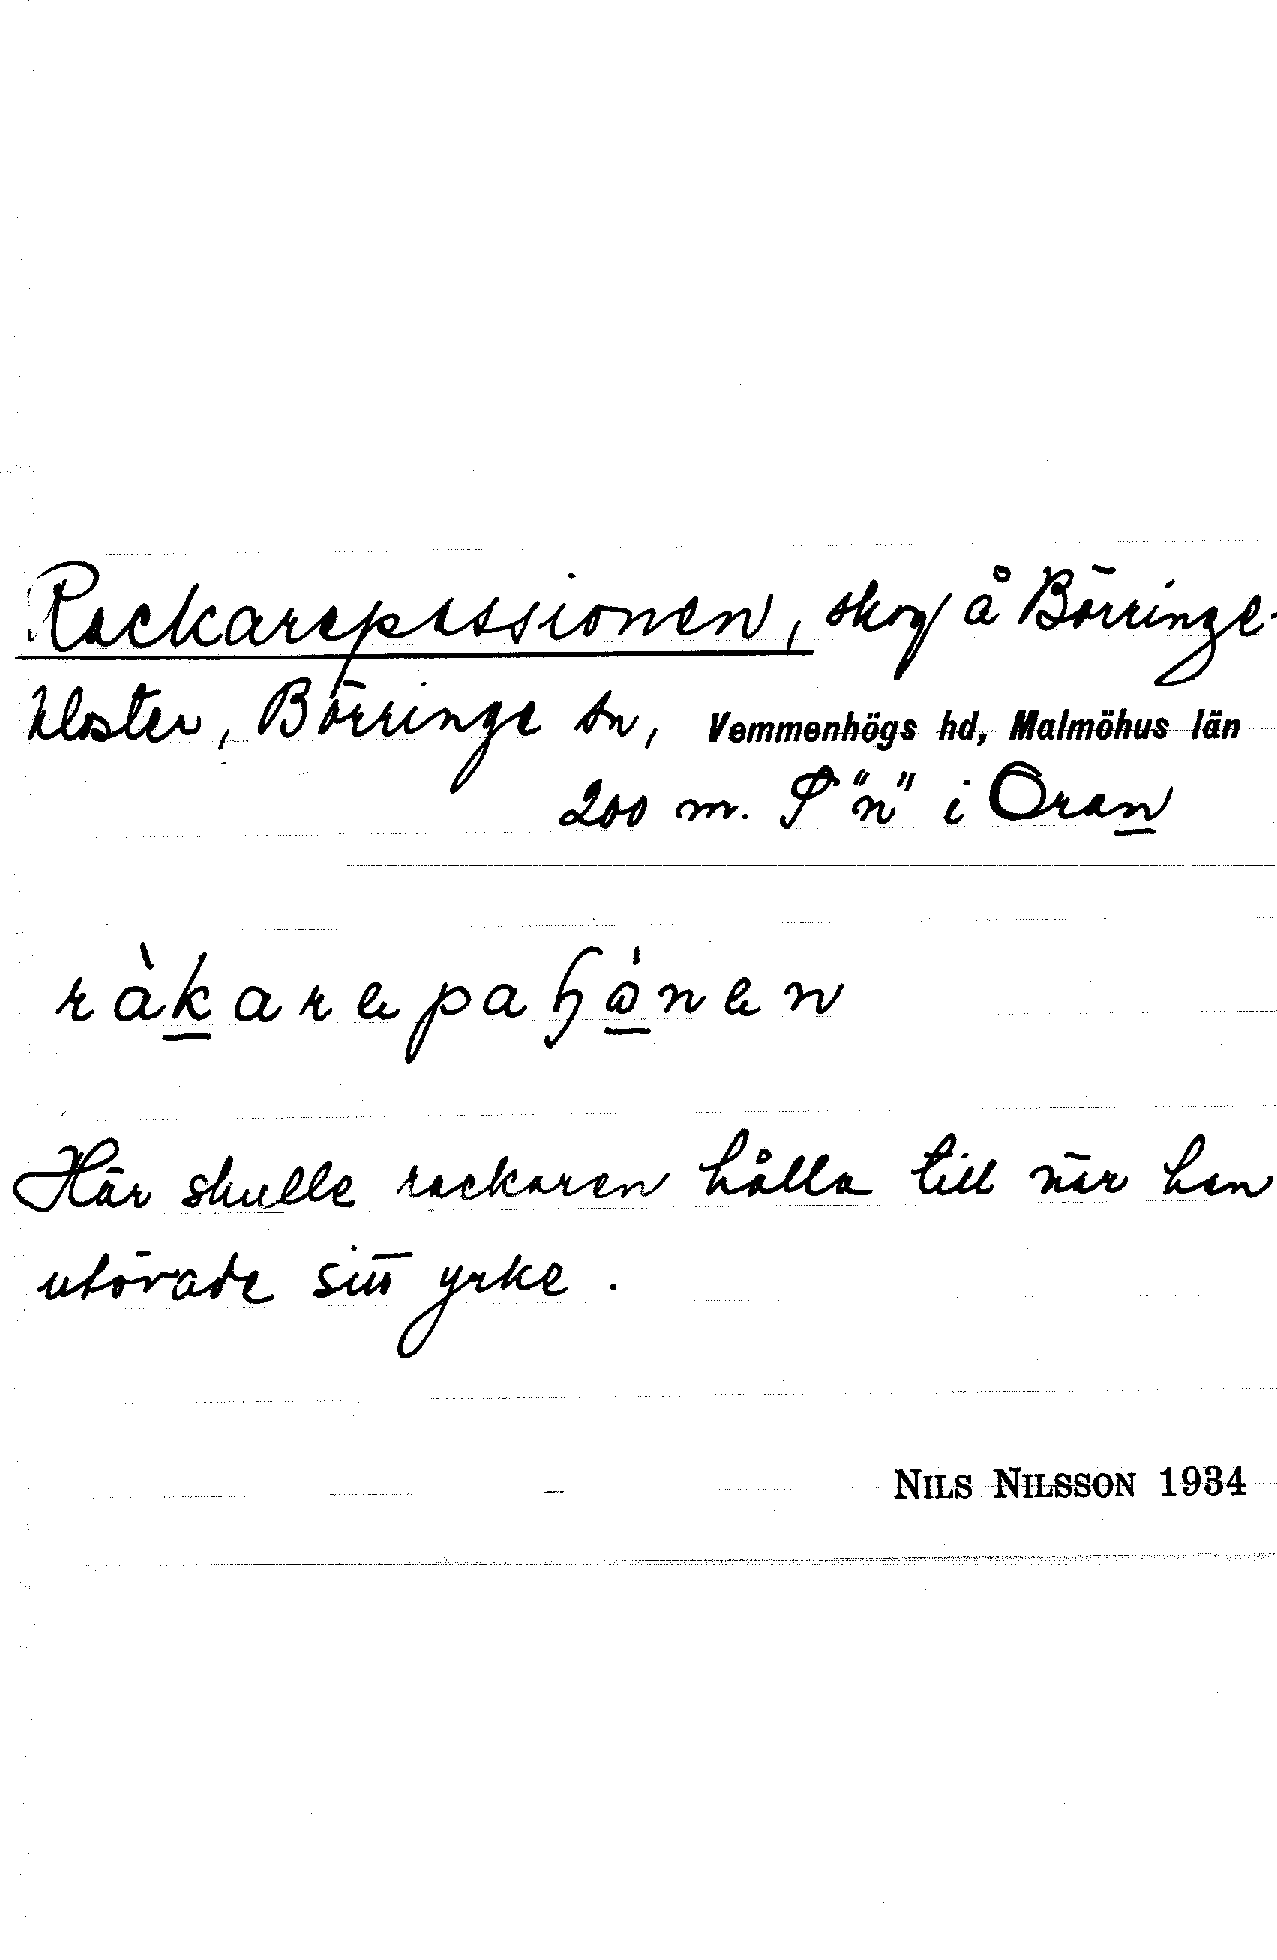 Rackarepassionen, skog å Börringe-
kloster, Börringe sn, Vemmenhögs hd, Malmöhus län
200 m. S "n" i Oran
ràkarepaɧȯnen
Här skulle rackaren hålla till när han
utövade sitt yrke.
NILS NILSSON 1934